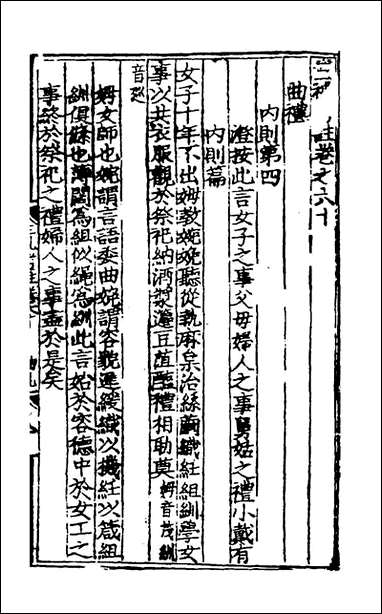 三禮 註卷之六十
曲禮
內則第四
澄按此言女子之事父母婦人之事舅姑之禮小戴有
內則篇
女子十年不出姆教婉娩聽從執麻枲治絲繭織紝組紃學女
事以共衣服觀於祭祀納酒漿籩豆菹醢禮相助奠 姆音茂紃
音巡
姆女師也婉謂言語委曲娩謂容貌遲緩織以機紝以箴組
紃俱絛也薄闊為組似繩為紃此言始於容德中於女工之
事終於祭祀之禮婦人之事盡於是矣